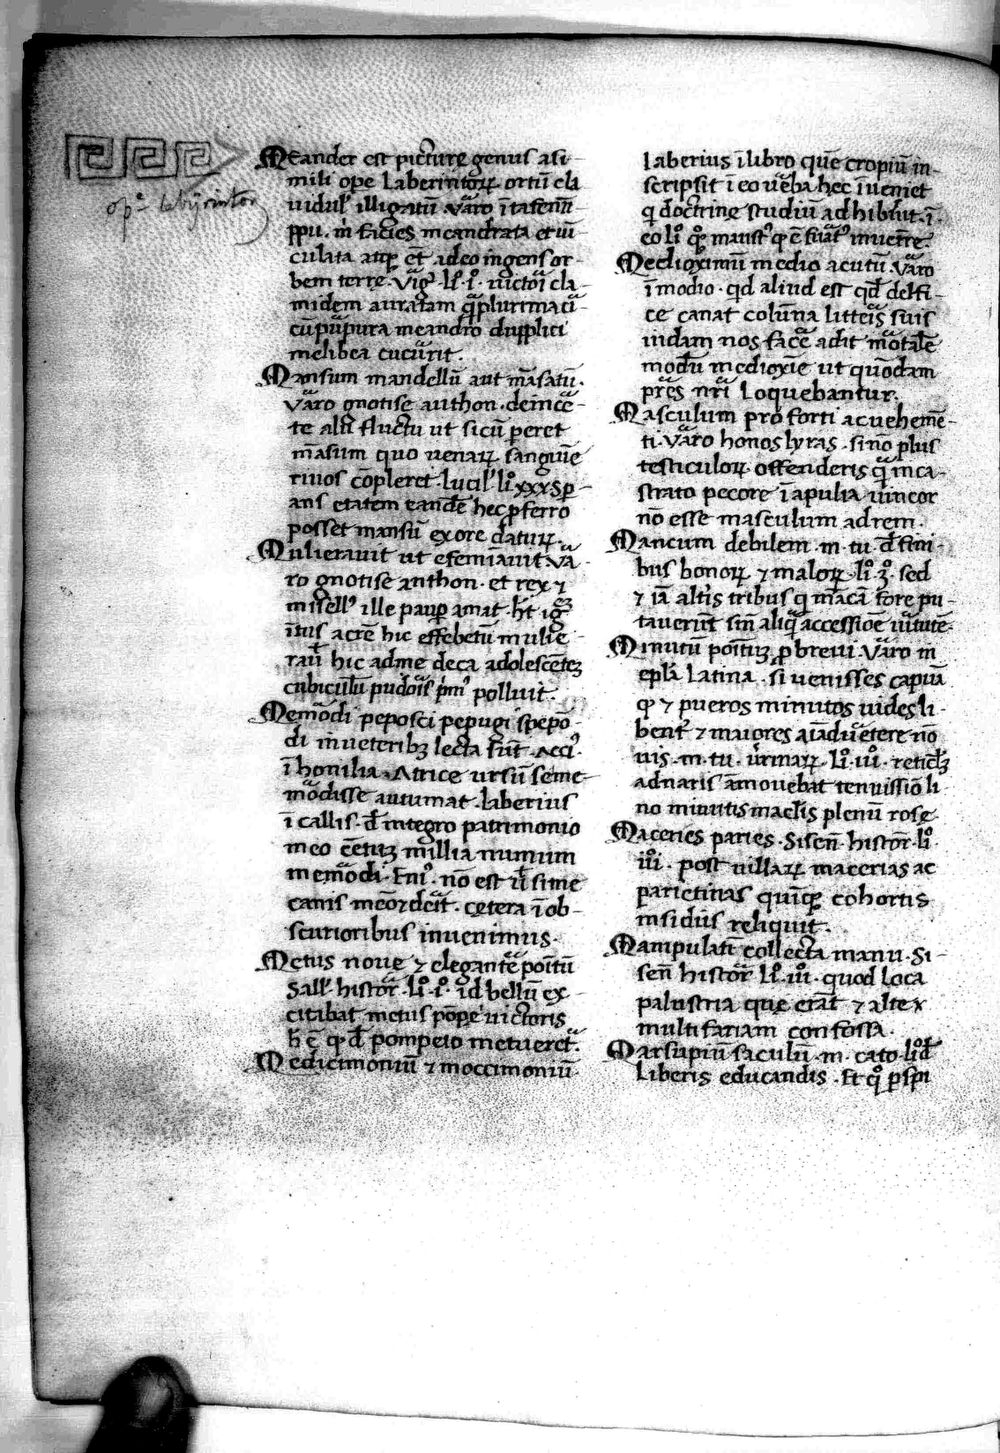 opᵉ labyrintor
MEander est picturę genus asi-
mili ope Laberintoꝝ ortū cla
uidulˢ illigatū. Varo ītafenīn
ppu. m̄ facies meandrata et ui
culata atqꝫ ēt adeo ingens or-
bem terre. Virgˡ. lıº. i. uictori cla
midem auratam q̄ plurima ci
cū pupura meandro dupplici
melibea cucurit.
Mansum mandellū aut māsatū.
Varo gnotise author. deince-
te alii fluctu ut sicū peret
māsum quo uenaꝝ sanguīe
riuos cōpleret. lucilˡ liº xxx Sp̱-
ans etatem eandē hec pferro
posset mansū ex ore daturꝝ.
Mulierauit ut efemīauit Va
ro gnotise anthon. et rex ⁊
misellˢ ille paup amat. h̄t igʳ
ītus acrē hic effebetū mulie-
rau̅ hic ad me deca adolescētez
cubiculū pudoris pimˢ polluit.
Memordi peposci pepugi spepo-
di inueteribꝫ lecta sūt. Acciˢ.
ī honilia. Atrice ursū seme
mordisse autumat. laberius
ī callis. d̄ integro patrimonio
meo cētuꝫ millia numum
memordi. Eniˢ. nō est ur̄ si me
canis meōrdeit. cetera ī ob-
scurioribus inuenimus.
Metus noue ⁊ elegante poītū
Sallˢ histor. liº. iº. id bellū ex-
citabat metus pōpei uictoris
h̄ ē q d̄ pompeio metueret.
Medicimoniū ⁊ moecimoniū
laberius ī libro que cropiū in-
scripsit ī eo ueba hec īueniet
q doctrine studiū adhibūt. ī
eo liº qº manstˢ q ē fuatˢ inuetre.
Medioximū medio acutū. Varo
ī modio. qd aliud est qd delfi-
ce canat colūna litteris suis
uidam nos facē adit mortalē
modū medioxīe ut quōdam
pr̄es nr̄i loquebantur.
Masculum pro forti ac uehemē-
ti. Varo honos lyras. si nō plus
testiculoꝝ offenderis q̄ in ca-
strato pecore ī apulia uincor
nō esse masculum ad rem.
Mancum debilem. m. tu. d̄ fini
bus honoꝝ ⁊ maloꝝ. liº. 3º. sed
⁊ iā alt̄is tribus q mācā fore pu-
tauerūt sin̄ aliq̄ accessiōe uirtute.
Minutū poītuꝫ p breui Varo in
epl̄a Latina. si uenisses capuā
q ⁊ pueros minutos uides li-
bent̄ ⁊ maiores aīaduertere nō
uis. m. tu. uerrinaꝝ. liº. iiiº. reticl̄ꝫ
ad naris amouebat tenuissio li
no minutis maclis plenū rose
Maceries paries. Sisen̄. histor. liº.
iiiº. post uillaꝝ macerias ac
parietinas quīqꝫ cohortis
insidiis reliquit.
Manipulati collecta manu. Si-
sen̄ histor liº. iiiº. quod loca
palustria que erāt ⁊ alte x
multifariam confossa.
Marsupiū saculū. m. cato. liº d̄
liberis educandis. Et qº pspi